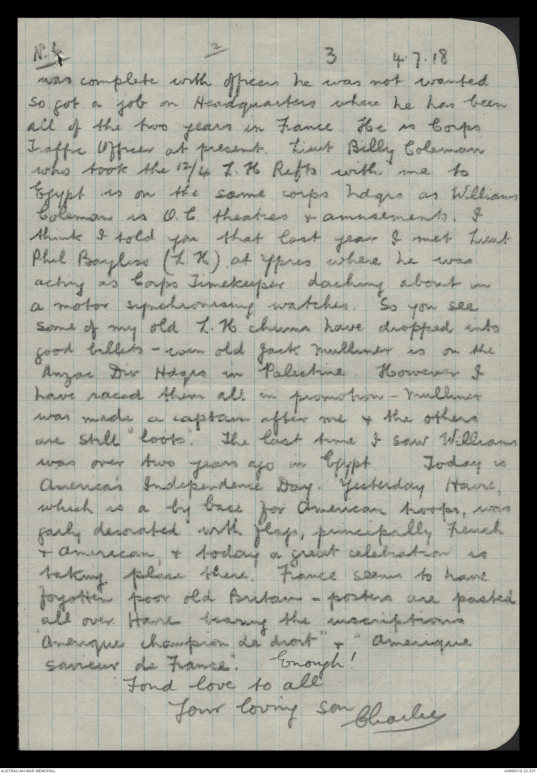 3 4.7.18
was complete with officers he was not wanted
so got a job on Headquarters where he has been
all of the two years in France He is Corps
Traffic Officer at present. Lieut Billy Coleman
who took the 12/4 L.H Refts with me to
Egypt is on the same corps hdqrs as Williams
Coleman is O.C. theatres & amusements. I
think I told you that last year I met Lieut
Phil Bayliss (L.H) at Ypres where he was
acting as Corps Timekeeper daching about in
a motor synchronising watches. So you see
some of my old L.H chums have dropped into
good billets - even old Jack Mulliner is on the
Anzac Div Hdqrs in Palestine. However I
have raced them all in promotion - Mulliner
was made a captain after me & the others
are still "loots. The last time I saw Williams
was over two years ago in Egypt Today is
America's Independence Day. Yesterday Havre,
which is a big base for American troops, was
gaily decorated with flags, principally French
& American, & today a great celebration is
taking place there. France seems to have
forgotten poor old Britain - posters are pasted
all over Havre bearing the inscriptions
"Amerique champion de droit" & "Amerique
saveur de France". Enough!
Fond love to all
Your loving son
Charlie
AUSTRALIAN WAR MEMORIAL